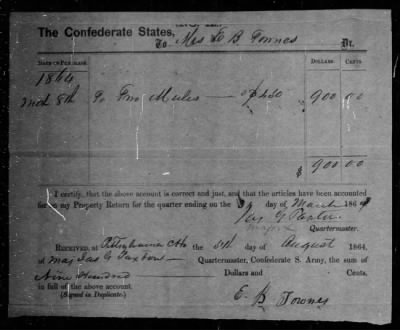 The Confederate States,
To Mrs E B Townes Dr.
DATE OF PURCHASE. DOLLARS. CENTS.
1864
Mch 8th To Two Mules — @ $450 900 00
$ 900 00
I certify, that the above account is correct and just, and that the articles have been accounted
for in my Property Return for the quarter ending on the day of March 186
Jas G Paxton
Major Quartermaster.
RECEIVED, at Pittsylvania CH the 5th day of August 1864,
of Maj Jas G Paxton Quartermaster, Confederate S. Army, the sum of
Nine Hundred Dollars and Cents,
in full of the above account.
(Signed in Duplicate.)
E B Townes